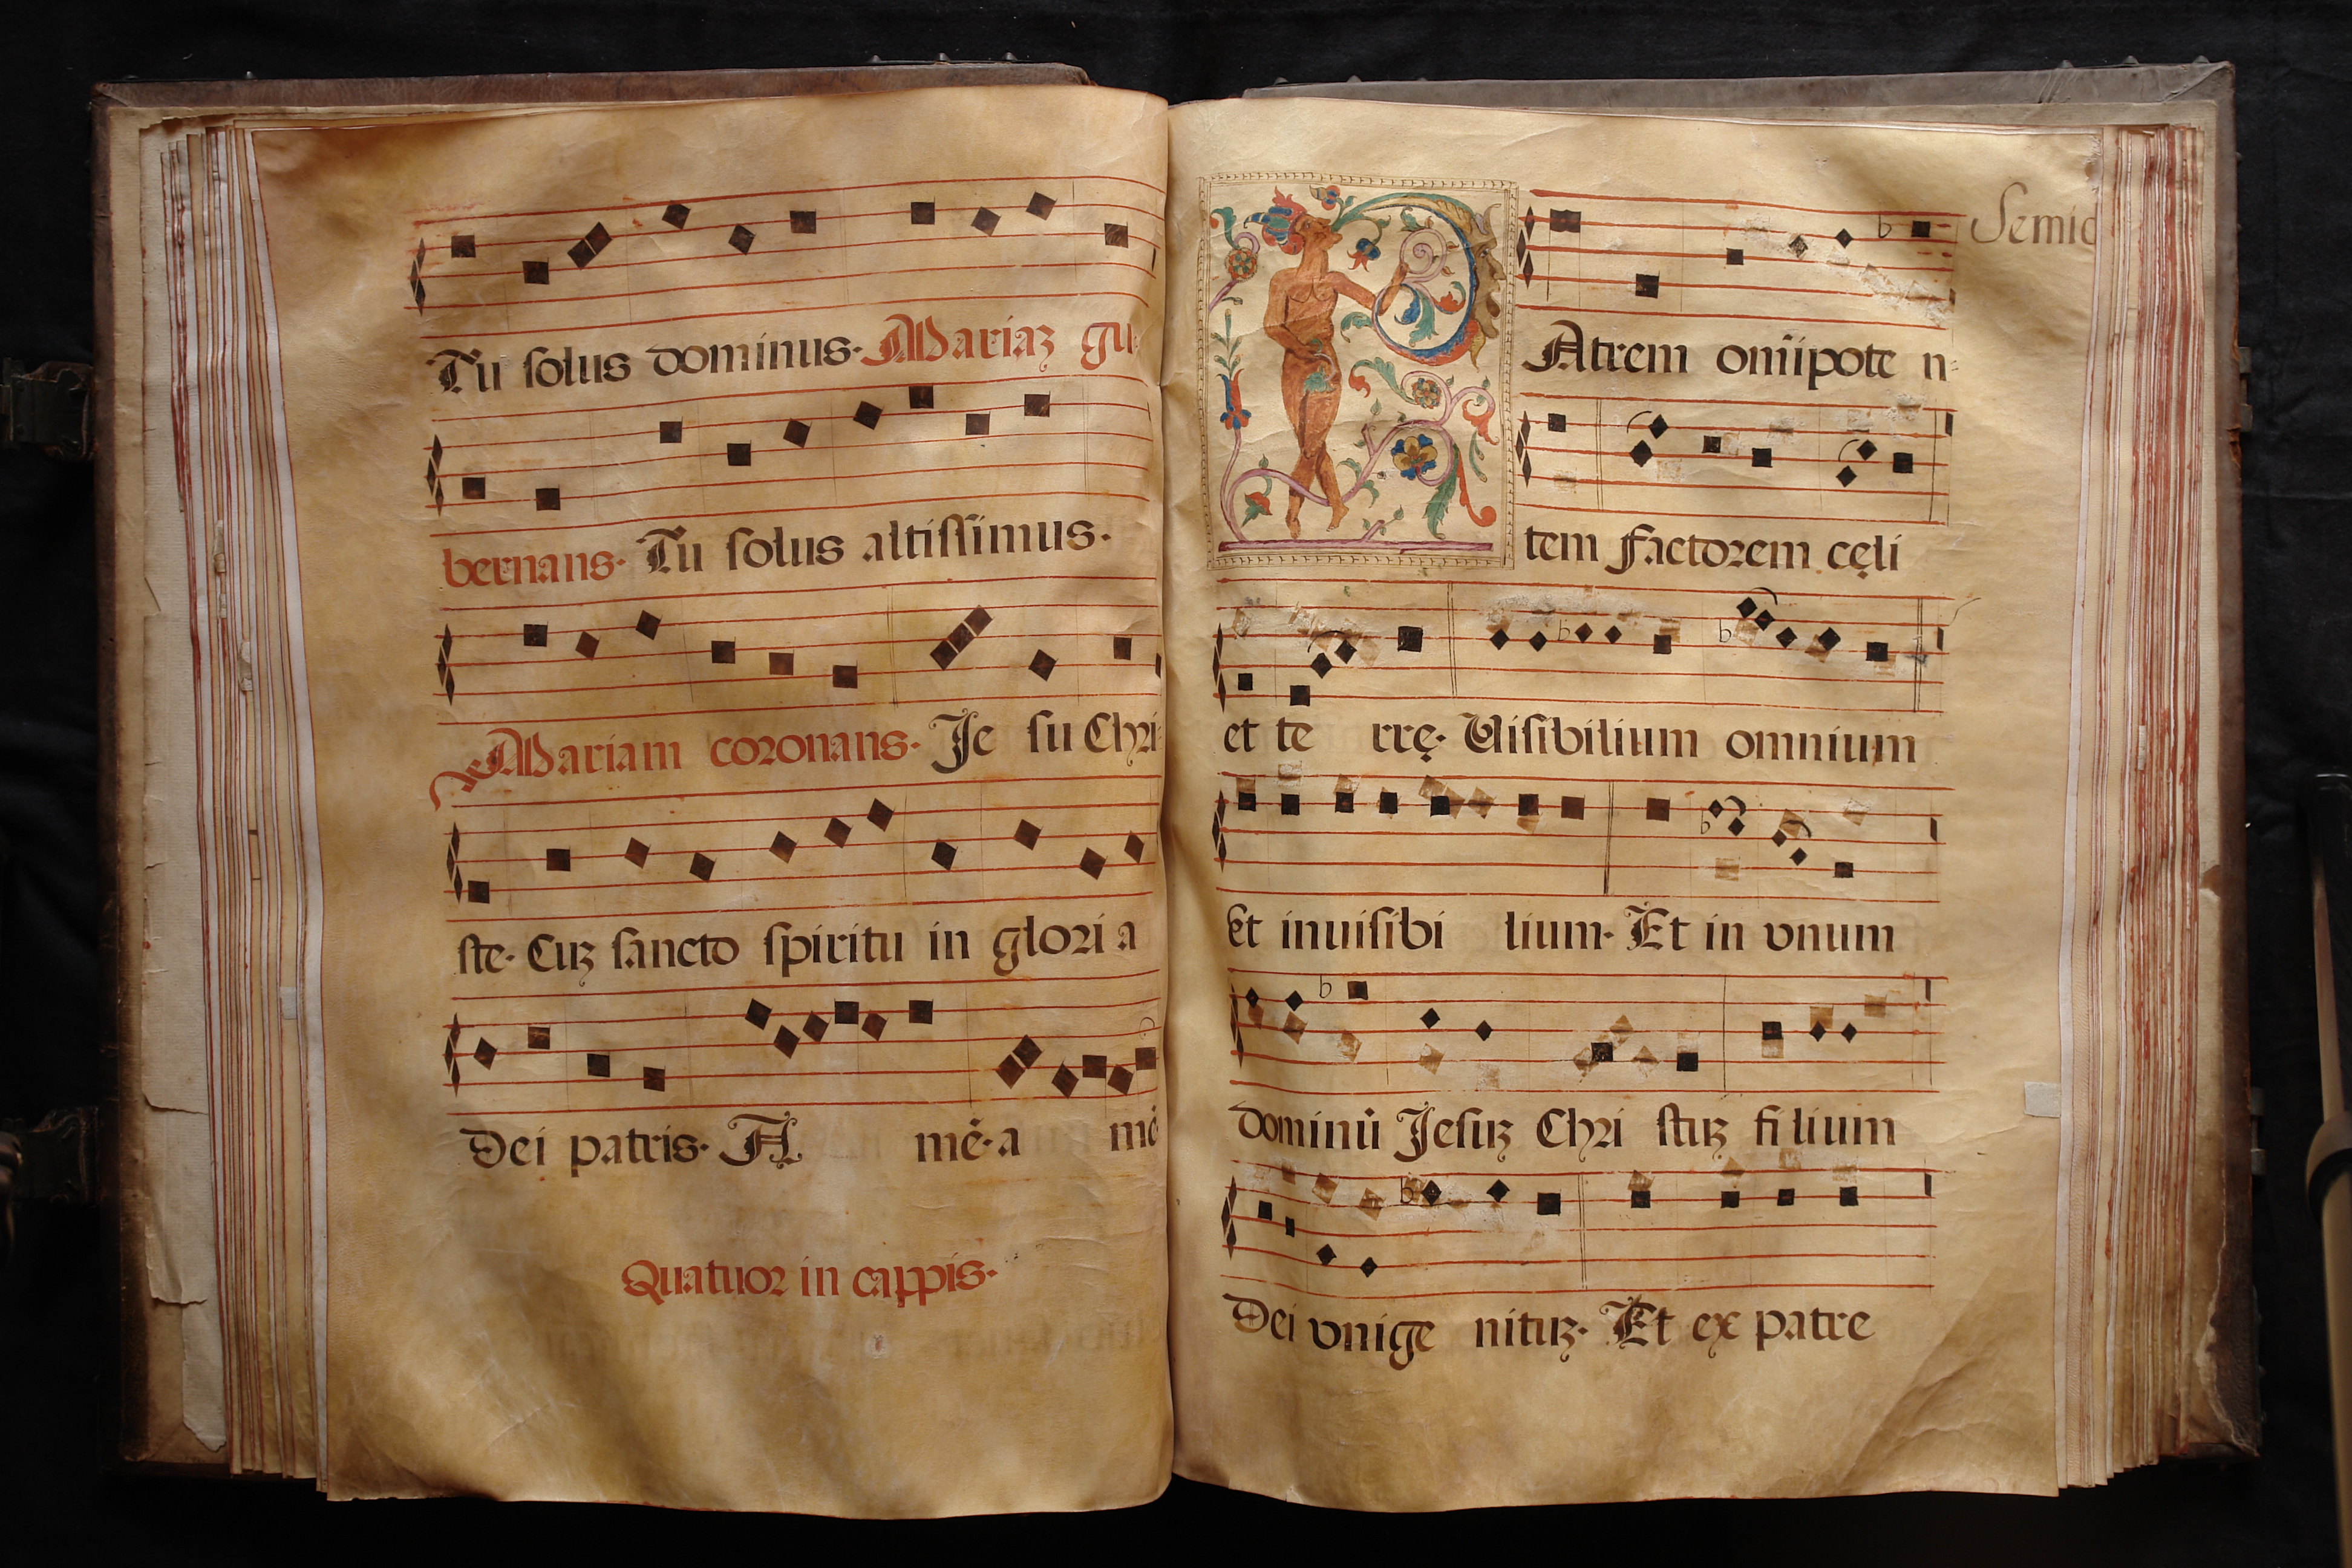 Tu ſolus dominus. Mariaꝫ gu
bernans. Tu ſolus altiſſimus.
Mariam coꝛonans. Je ſu Chꝛi
ſte. Cuꝫ ſancto ſpiritu in gloꝛi a
Dei patris. A mē. a mē
Quatuoꝛ in cappis.
Semid
PAtrem om̄ipote n
tem factoꝛem cęli
et te rrę. Uiſibilium omnium
Et inuiſibi lium. Et in vnum
dominū Jeſuꝫ Chꝛi ſtuꝫ filium
Dei vnige nituꝫ. Et ex patre